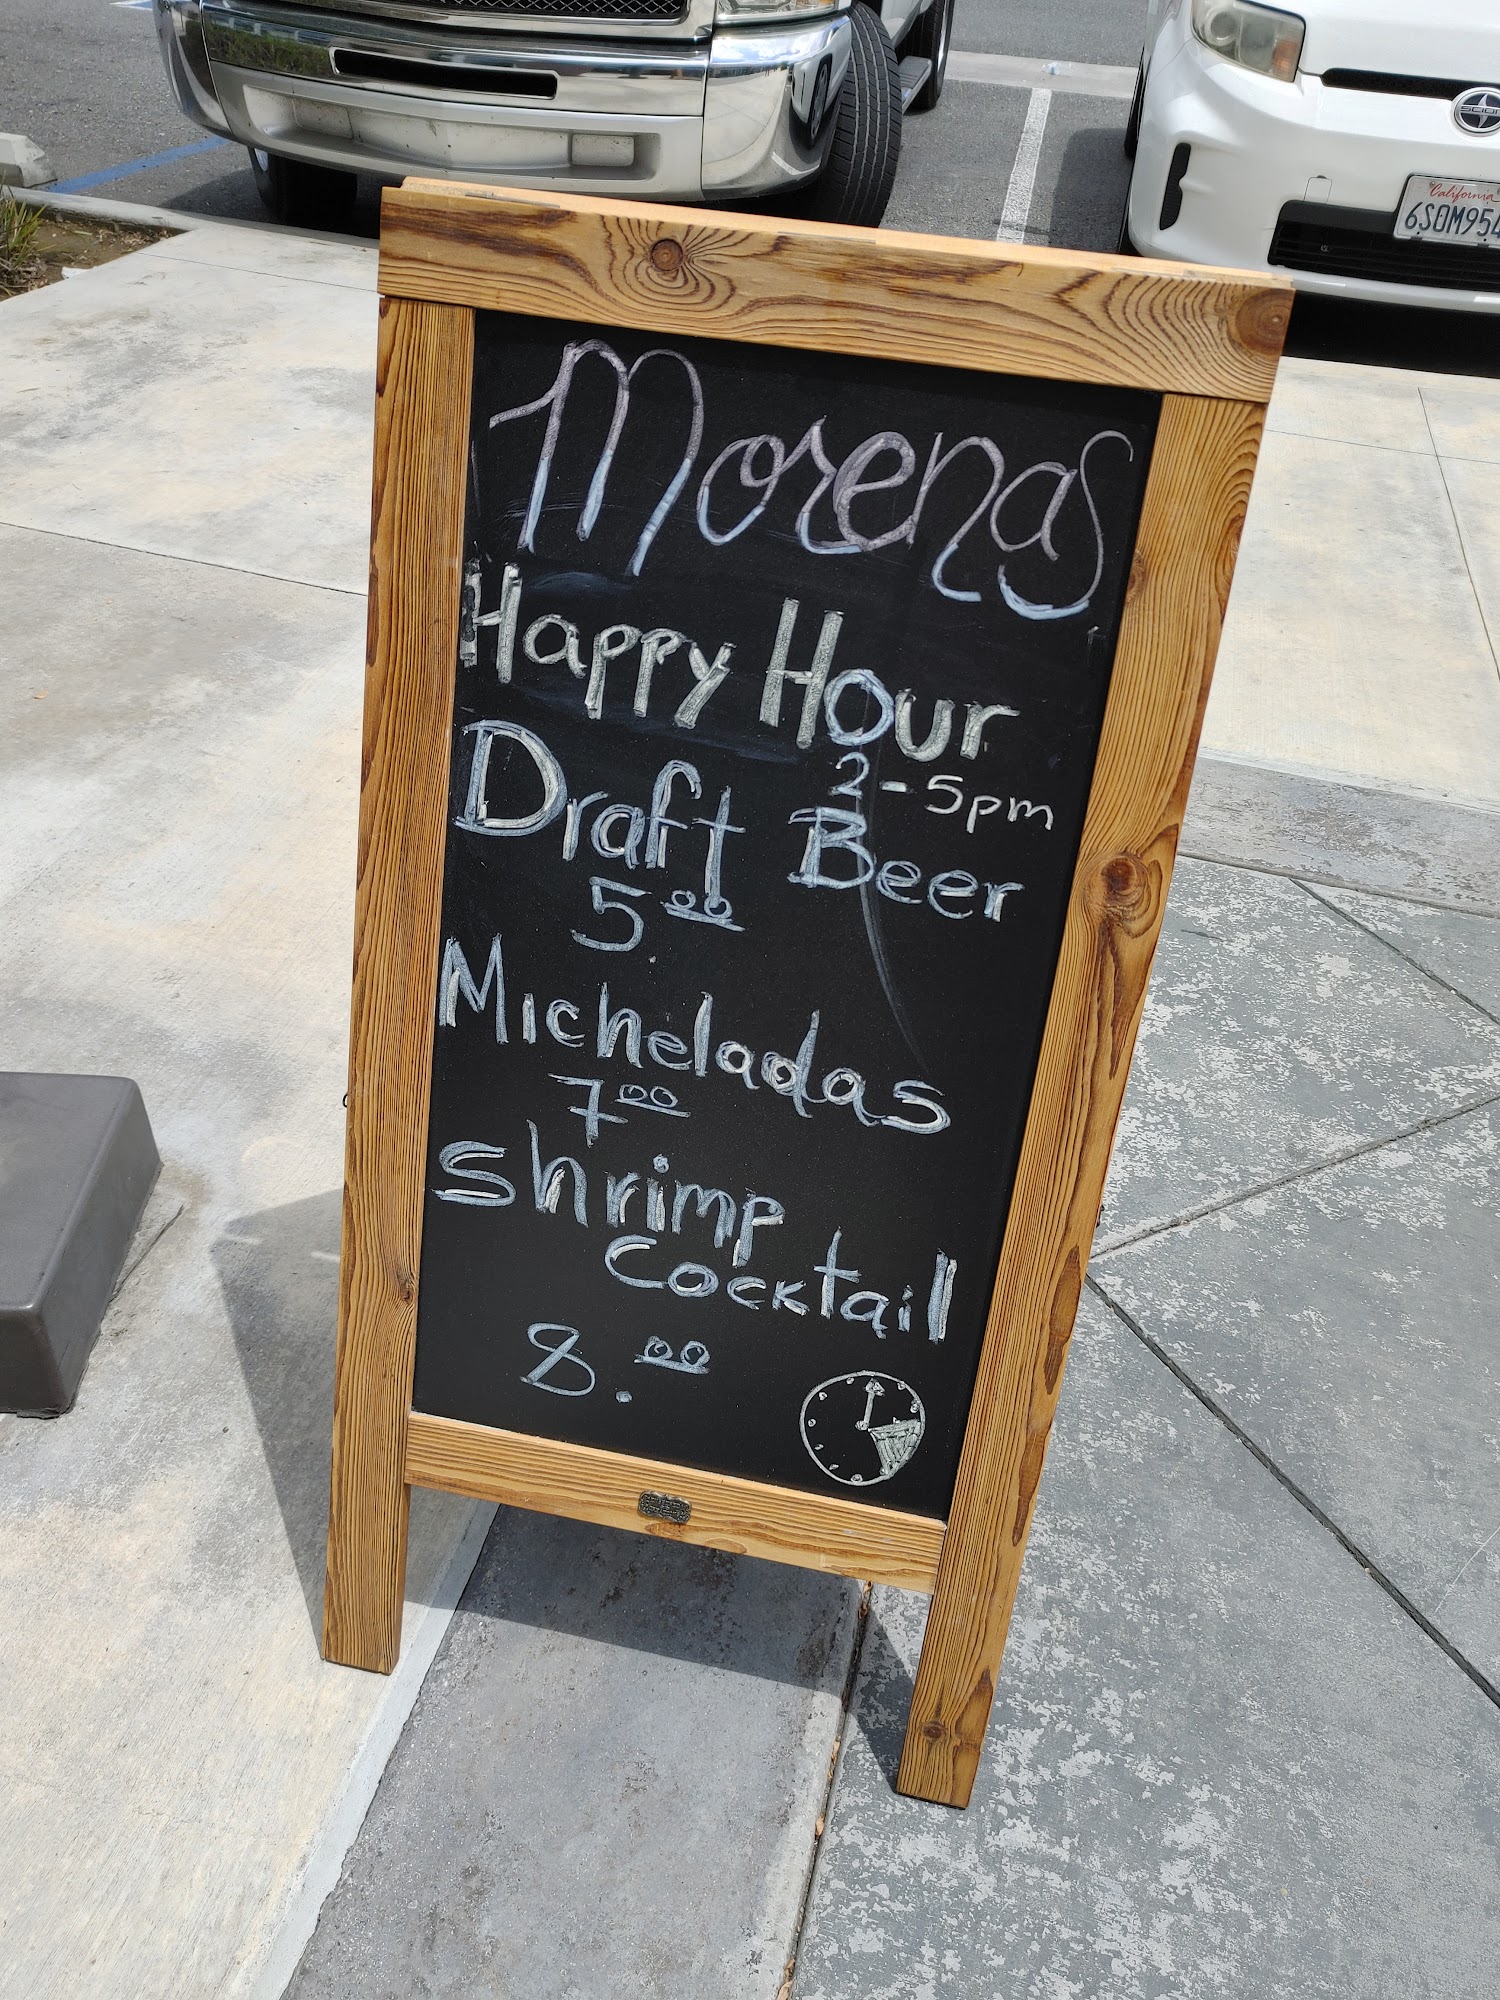 Morenas
Happy Hour
2-5pm
Draft Beer
5.00
Micheladas
7.00
Shrimp
Cocktail
8.00
SCION
California
6SOM954